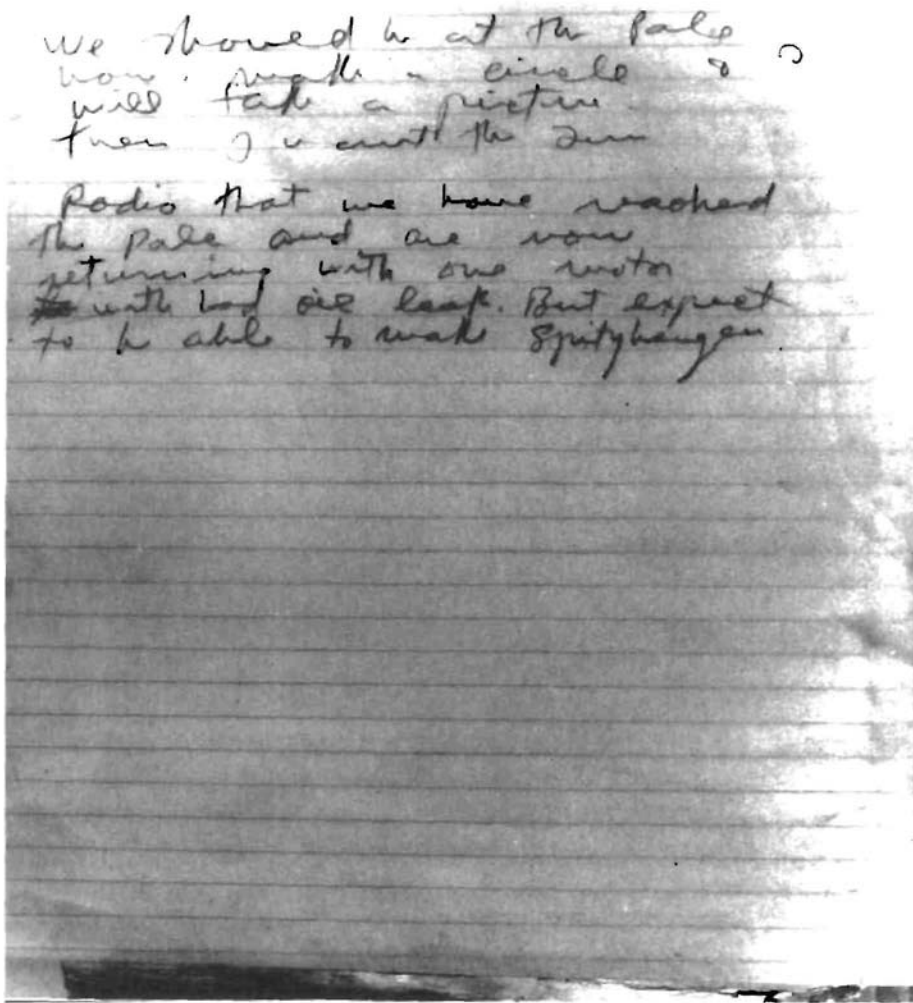 We should be at the Pole
now. make a circle & I
will take a picture.
then I want the Sun
Radio that we have reached
the pole and are now
returning with one motor
with bad oil leak. But expect
to be able to make Spitzbergen